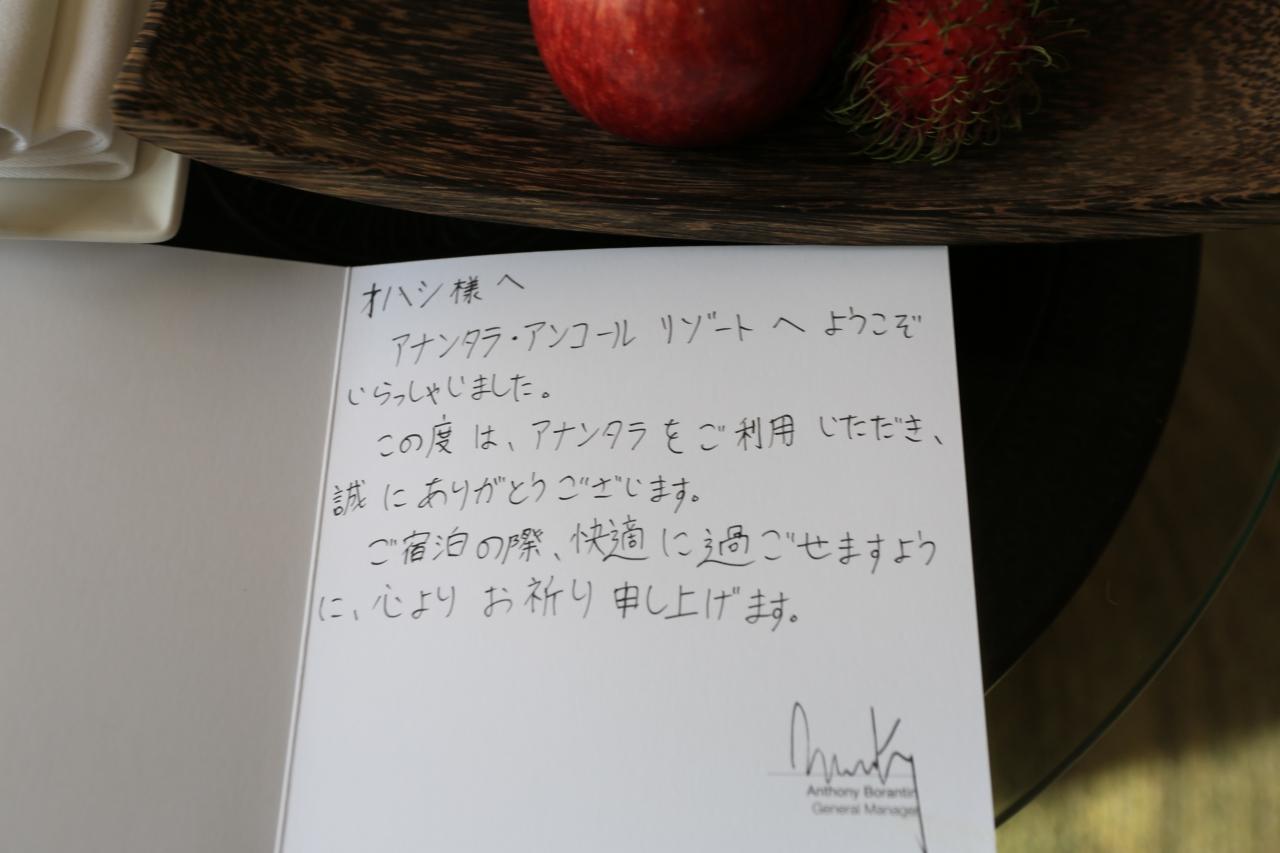 オハシ様へ
アナンタラ・アンコール リゾート へ ようこそ
いらっしゃいました。
この度 は、アナンタラ を ご利用 いただき、
誠 に ありがとうございます。
ご宿泊の際、快適 に 過ごせますよう
に、心より お祈り 申し上げます。
Anthony Borantin
General Manager